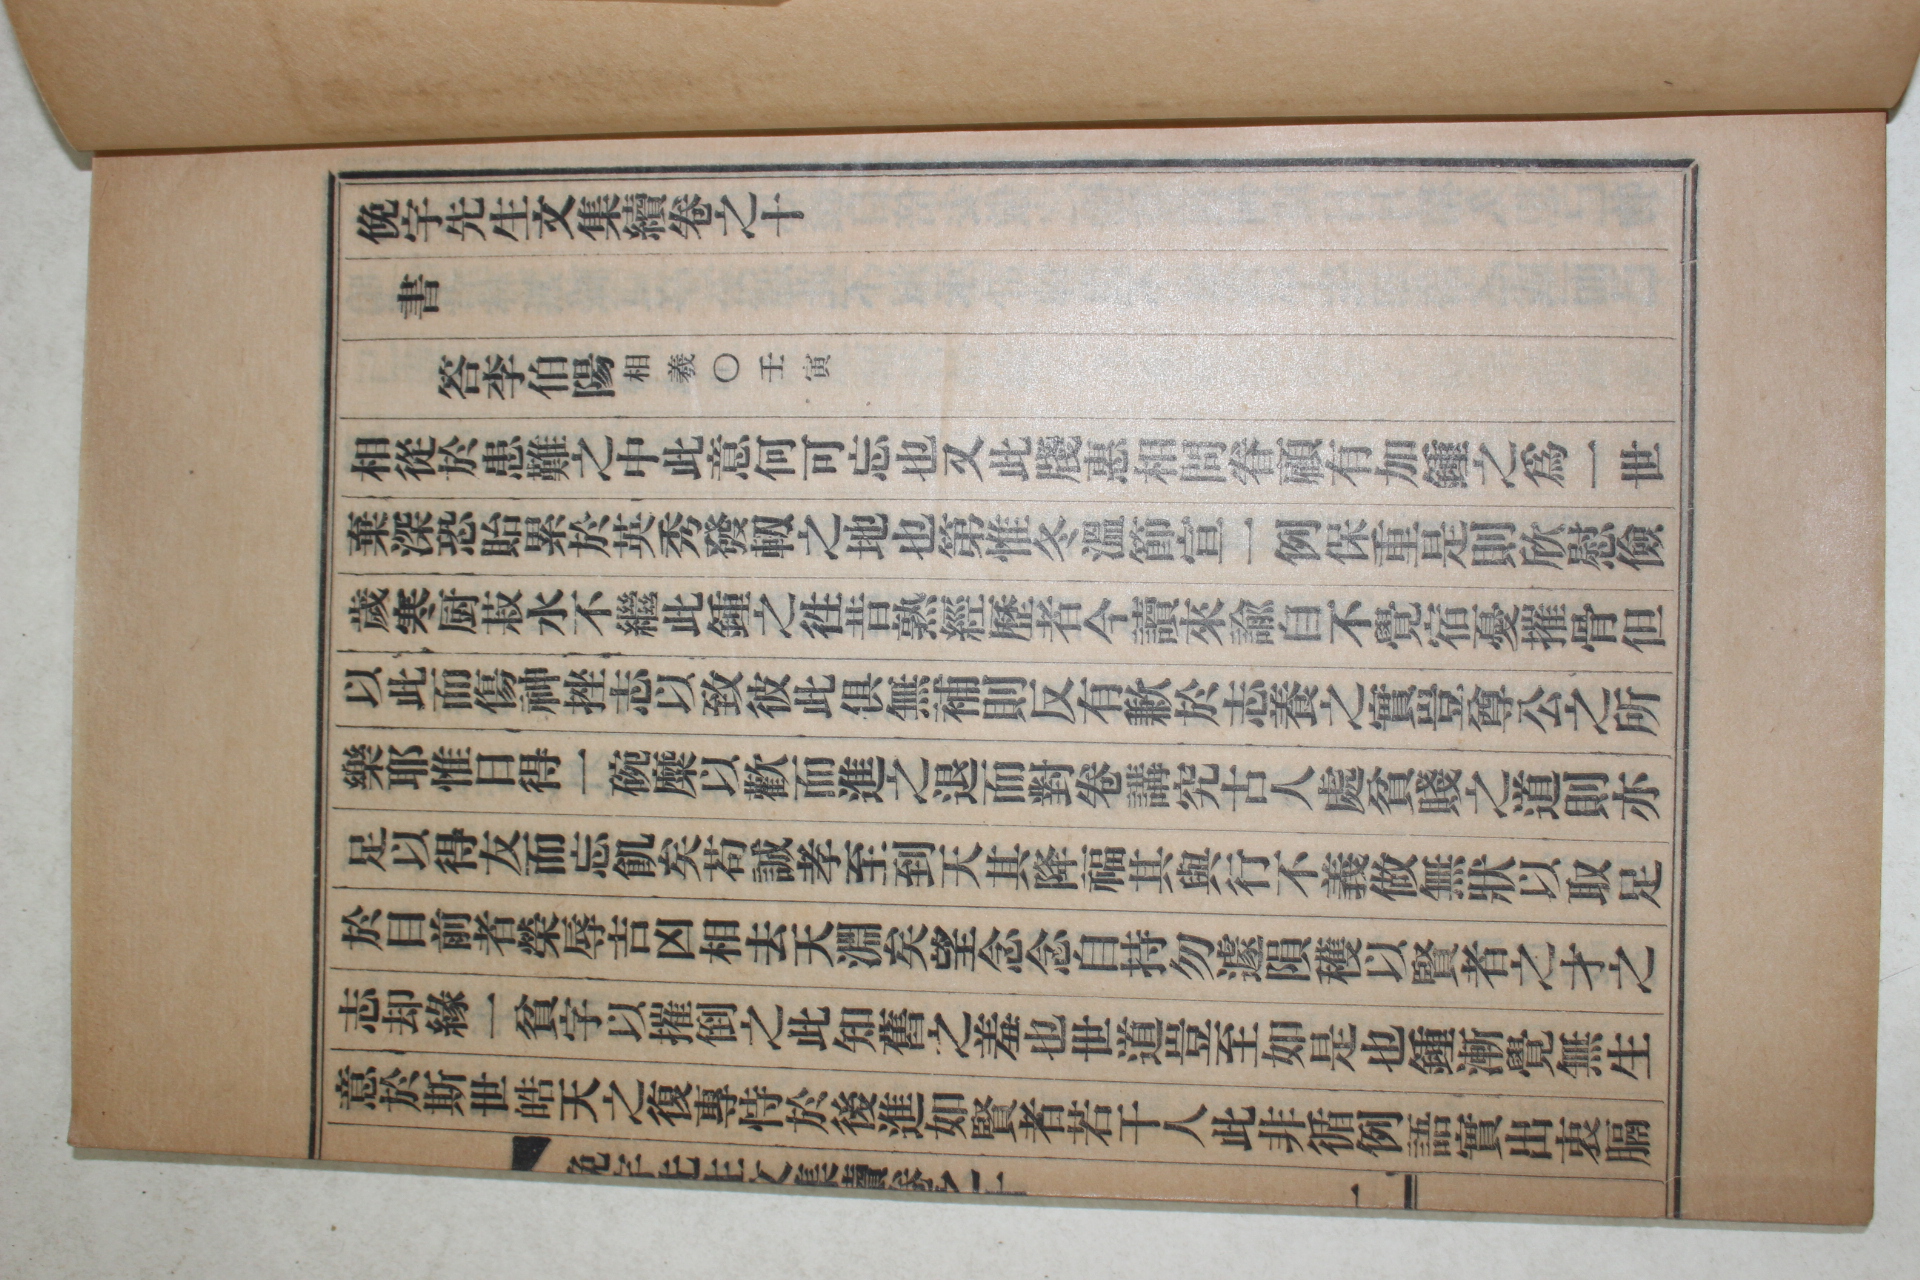 俛宇先生文集續卷之十
書
答李伯陽相羲○壬寅
相從於患難之中此意何可忘也又此局惠相問眷顧有加鍾之爲一世
棄深恐貽累於英秀發軔之地也第惟冬溫節宣一例保重是則欣慰儉
歲寒厨菽水不繼此鍾之徃昔熟經歷者今讀來諭自不覺宿憂摧骨但
以此而傷神挫志以致彼此俱無補則反有歉於志養之實豈尊公之所
樂耶惟日得一碗糜以歡而進之退而對卷講究古人處貧賤之道則亦
足以得友而忘飢矣苟誠孝至到天其降福其與行不義做無狀以取足
於目前者榮辱吉凶相去天淵矣望念念自持勿遽隕穫以賢者之才之
志却緣一貧字以摧倒之此知舊之羞也世道豈至如是也鍾漸覺無生
意於斯世皓天之復專恃於後進如賢者若干人此非循例語實出衷膈
俛宇先生文集續卷之十 一